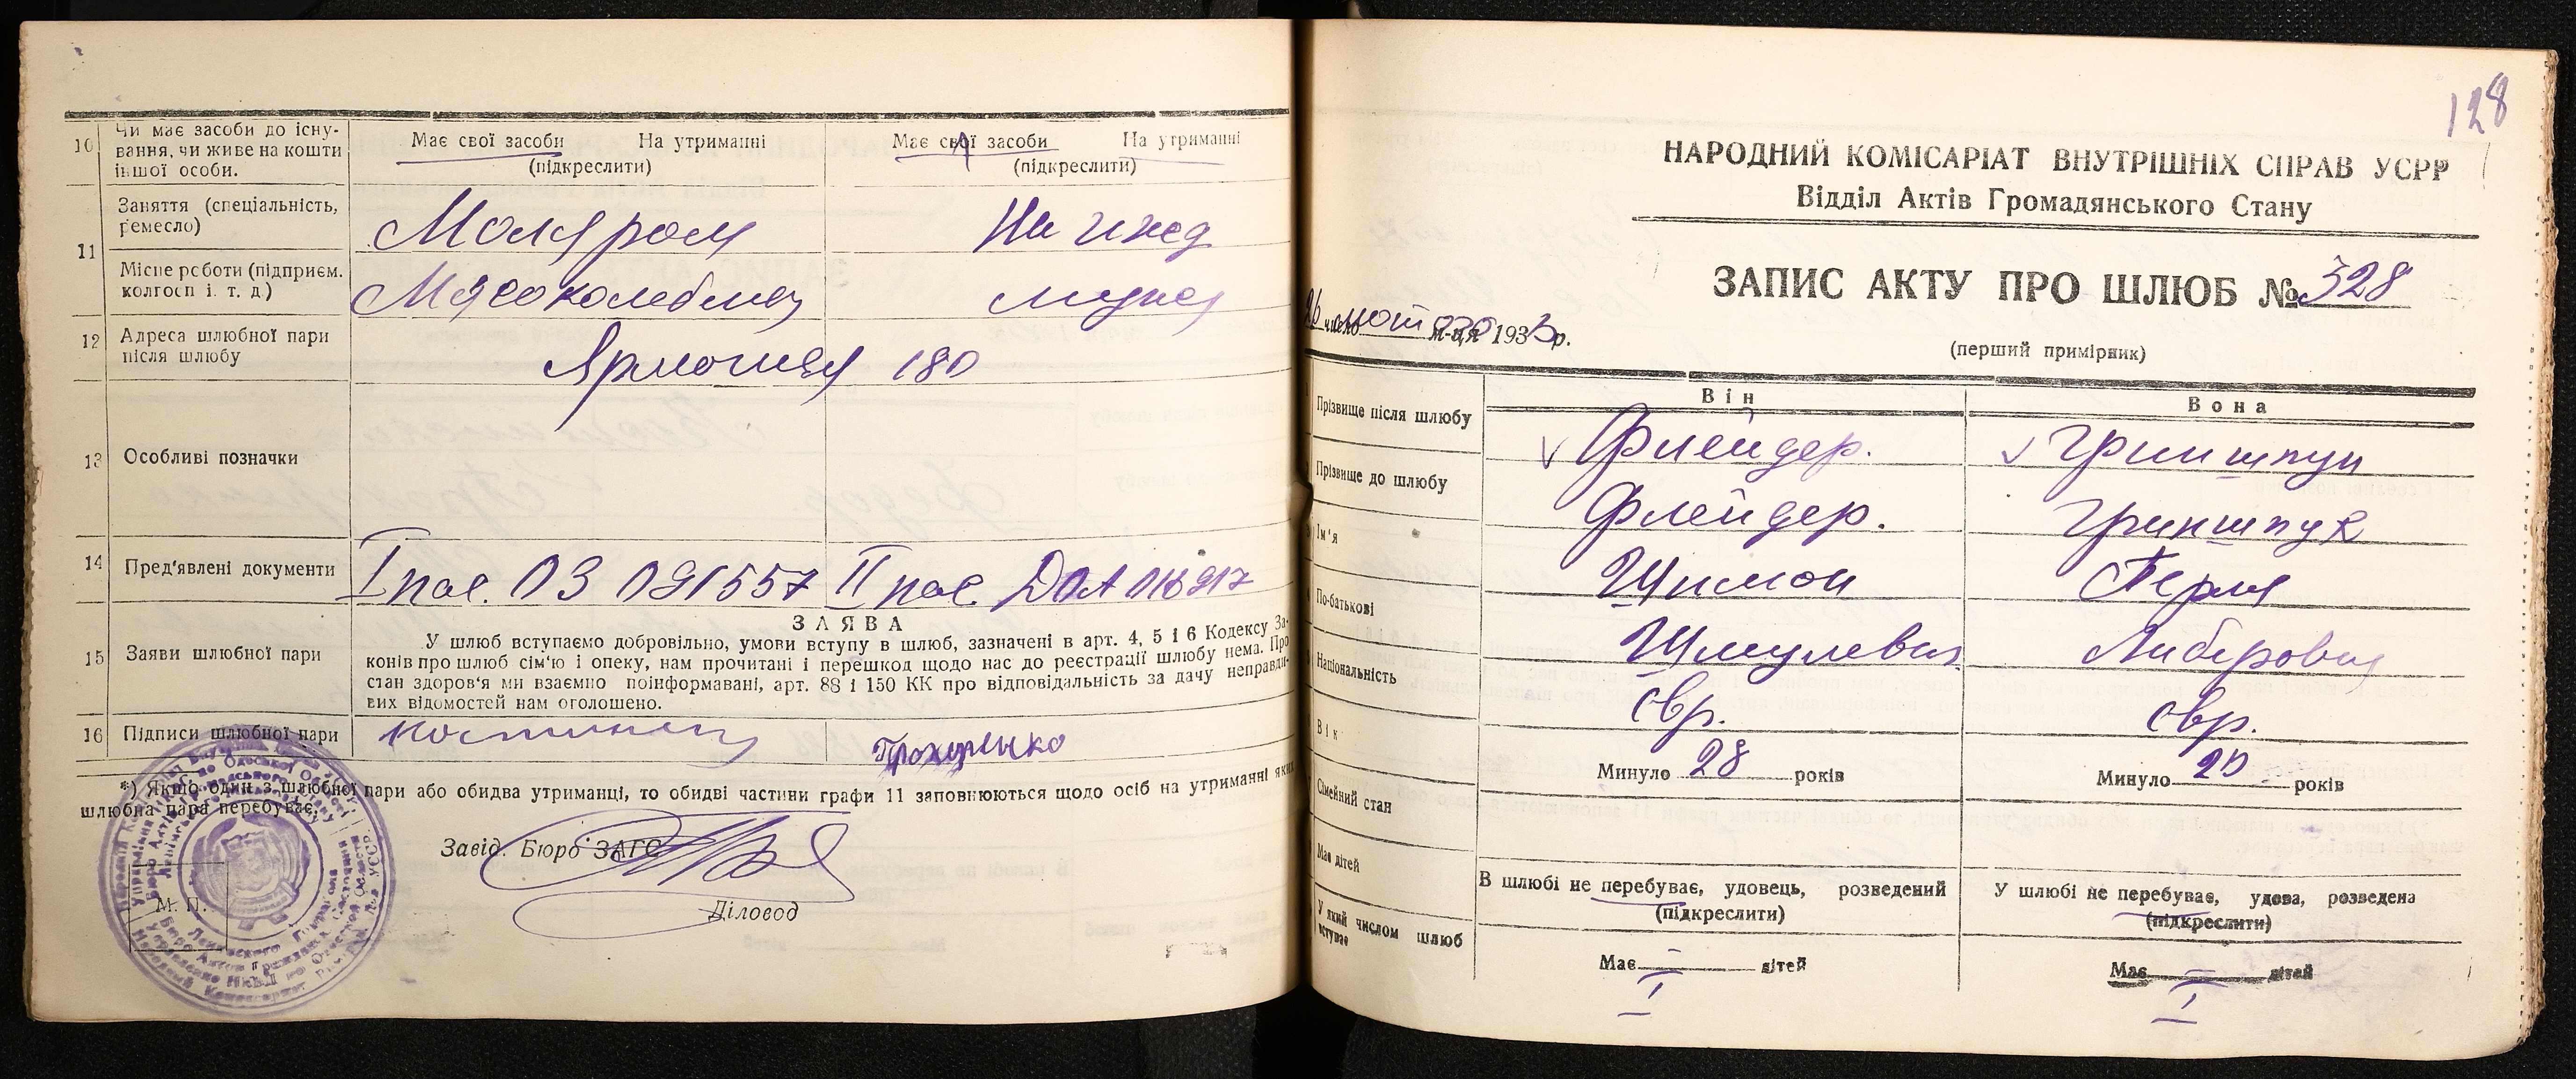 10 Чи має засоби до існу-
вання, чи живе на кошти
іншої особи.
Має свої засоби На утриманні
(підкреслити)
Має свої засоби На утриманні
(підкреслити)
11 Заняття (спеціальність,
ремесло)
Маляром
На ижд
Місце роботи (підприєм.
колгосп і. т. д.)
Мясокомбинат
мужа
12 Адреса шлюбної пари
після шлюбу
180
13 Особливі позначки
14 Пред'явлені документи
I пас. 03 091557 II пас.
15 Заяви шлюбної пари
ЗАЯВА
У шлюб вступаємо добровільно, умови вступу в шлюб, зазначені в арт. 4, 5 і 6 Кодексу За-
конів про шлюб сім'ю і опеку, нам прочитані і перешкод щодо нас до реєстрації шлюбу нема. Про
стан здоров'я ми взаємно поінформавані, арт. 88 і 150 КК про відповідальність за дачу неправди-
вих відомостей нам оголошено.
16 Підписи шлюбної пари
*) Якщо один з шлюбної пари або обидва утриманці, то обидві частини графи 11 заповнюються щодо осіб на утриманні яких
шлюбна пара перебуває.
Завід. Бюро ЗАГС
М. П.
Діловод
128
НАРОДНИЙ КОМІСАРІАТ ВНУТРІШНІХ СПРАВ УСРР
Відділ Актів Громадянського Стану
ЗАПИС АКТУ ПРО ШЛЮБ № 328
26 число м-ця 193 р.
(перший примірник)
Він
Вона
Прізвище після шлюбу
Флейдер.
Гриншпун
Прізвище до шлюбу
Флейдер.
Гриншпун
Ім'я
Шимон
Перля
По-батькові
Шмулевич
Либеровна
Національність
євр.
євр.
Вік
Минуло 28 років
Минуло 20 років
Сімейний стан
В шлюбі не перебуває, удовець, розведений
(підкреслити)
У шлюбі не перебуває, удова, розведена
(підкреслити)
Має дітей
Має – дітей
Має – дітей
У який числом шлюб
вступає
I
I